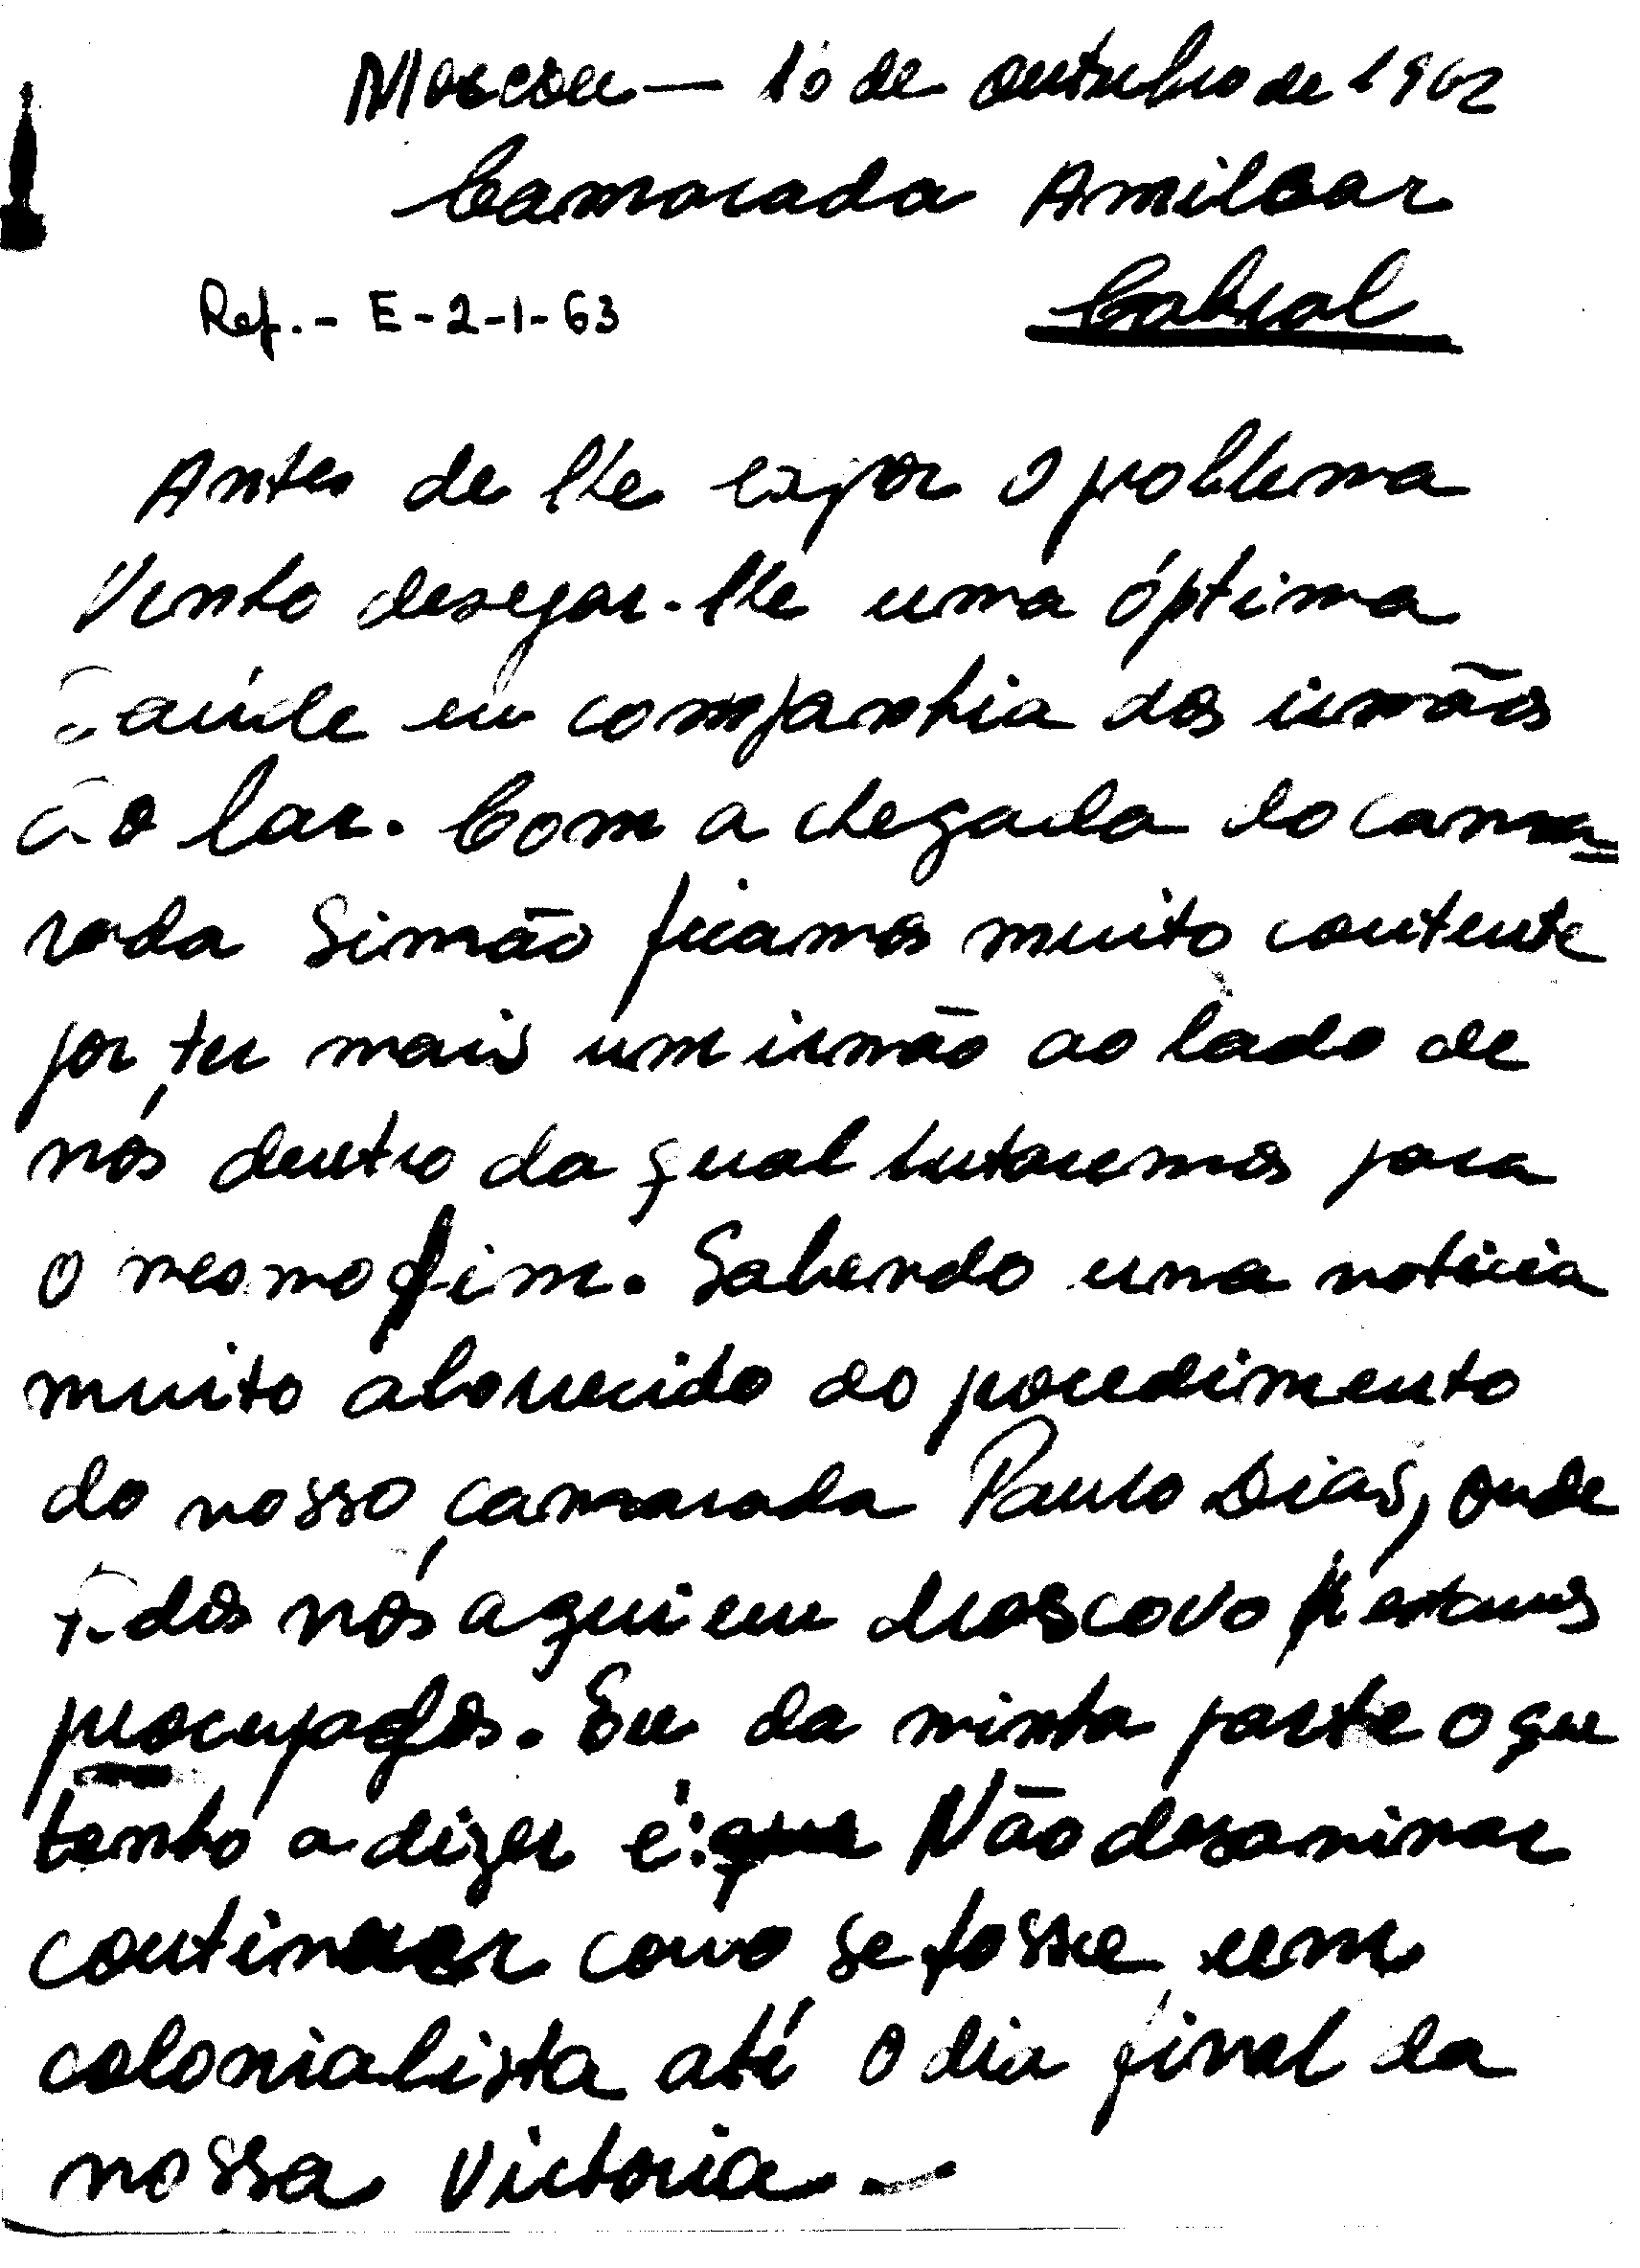 Moscou — 10 de outubro de 1962
Camarada Amilcar
Cabral
Ref. - E-2-1-63
Antes de lhe expor o problema
Venho desejar-lhe uma óptima
saúde em companhia dos irmãos
ao lar. Com a chegada do cama-
rada Simão ficamos muito contente
por ter mais um irmão ao lado de
nós dentro da qual lutaremos para
o mesmo fim. Sabendo uma noticia
muito aborrecido do procedimento
do nosso camarada Paulo Dias, onde
todos nós aqui em Moscovo estamos
procupados. Eu da minha parte o que
tenho a dizer é: que Não desanimar
continuar como se fosse um
colonialista até o dia final da
nossa Victoria -